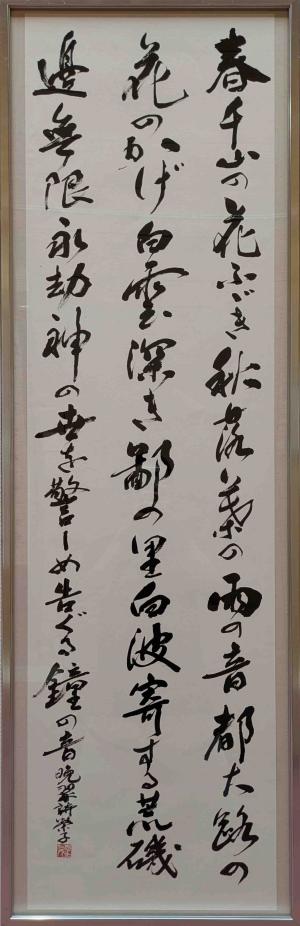 春千山の花ふぶき秋落葉の雨の音都大路の
花のかげ白雲深き鄙の里白波寄する荒磯
邊無限永劫神の世を警しめ告ぐる鐘の音 晩翠詩榮子